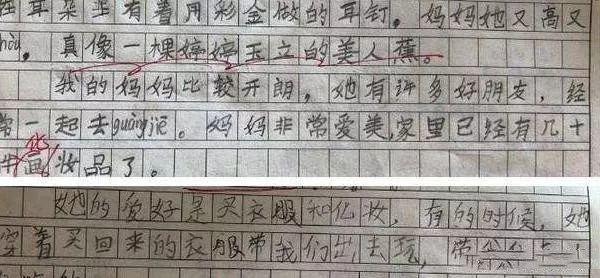 耳朵有着用彩金做的耳钉。妈妈她又高又
hòu。真像一棵婷婷玉立的美人蕉。
我的妈妈比较开朗，她有许多好朋友，经
常一起去guàngjiē。妈妈非常爱美,家里已经有几十
件画妆品了。
她的爱好是买衣服和化妆，有的时候，她
穿着买回来的衣服带我们出去玩，带